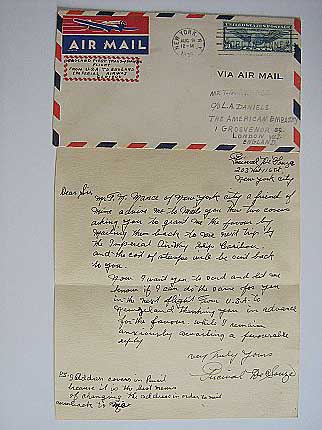 AIR MAIL
NEW YORK, N.Y.
AUG
12-M
UNITED STATES POSTAGE
FLIGHT
FROM U.S.A. TO ENGLAND
IMPERIAL AIRWAYS
VIA AIR MAIL
MR
C/o L.A. DANIELS
THE AMERICAN EMBASSY
1 GROSVENOR SQ.
LONDON W.1.
ENGLAND.
Percival De Souza
New York City
Dear Sir
Mr. F. W. Nance of New York City a friend of
mine advise me to mail you these two covers
asking you to grant me the favour by
mailing them back to me next trip by
the Imperial Air Way Ship Caribou
and the cost of stamps will be sent back
to you.
Now I want you to send and let me
know if I can do the same for you
in the next flight from U.S.A. to
England thanking you in advance
for the favour while I remain
anxiously awaiting a favourable
reply
Very Truly Yours
Percival De Souza
P.S. I address covers in Pencil
because it is the best means
of changing the address in order to mail
back to me